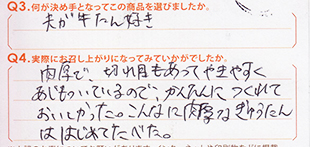 Q3.何が決め手となってこの商品を選びましたか。
夫が牛たん好き
Q4.実際にお召し上がりになってみていかがでしたか。
肉厚で、切れ目もあってやきやすく
あじもついているので、かんたんに つくれて
おいしかった。こんなに肉厚なぎゅうたん
は はじめてたべた。